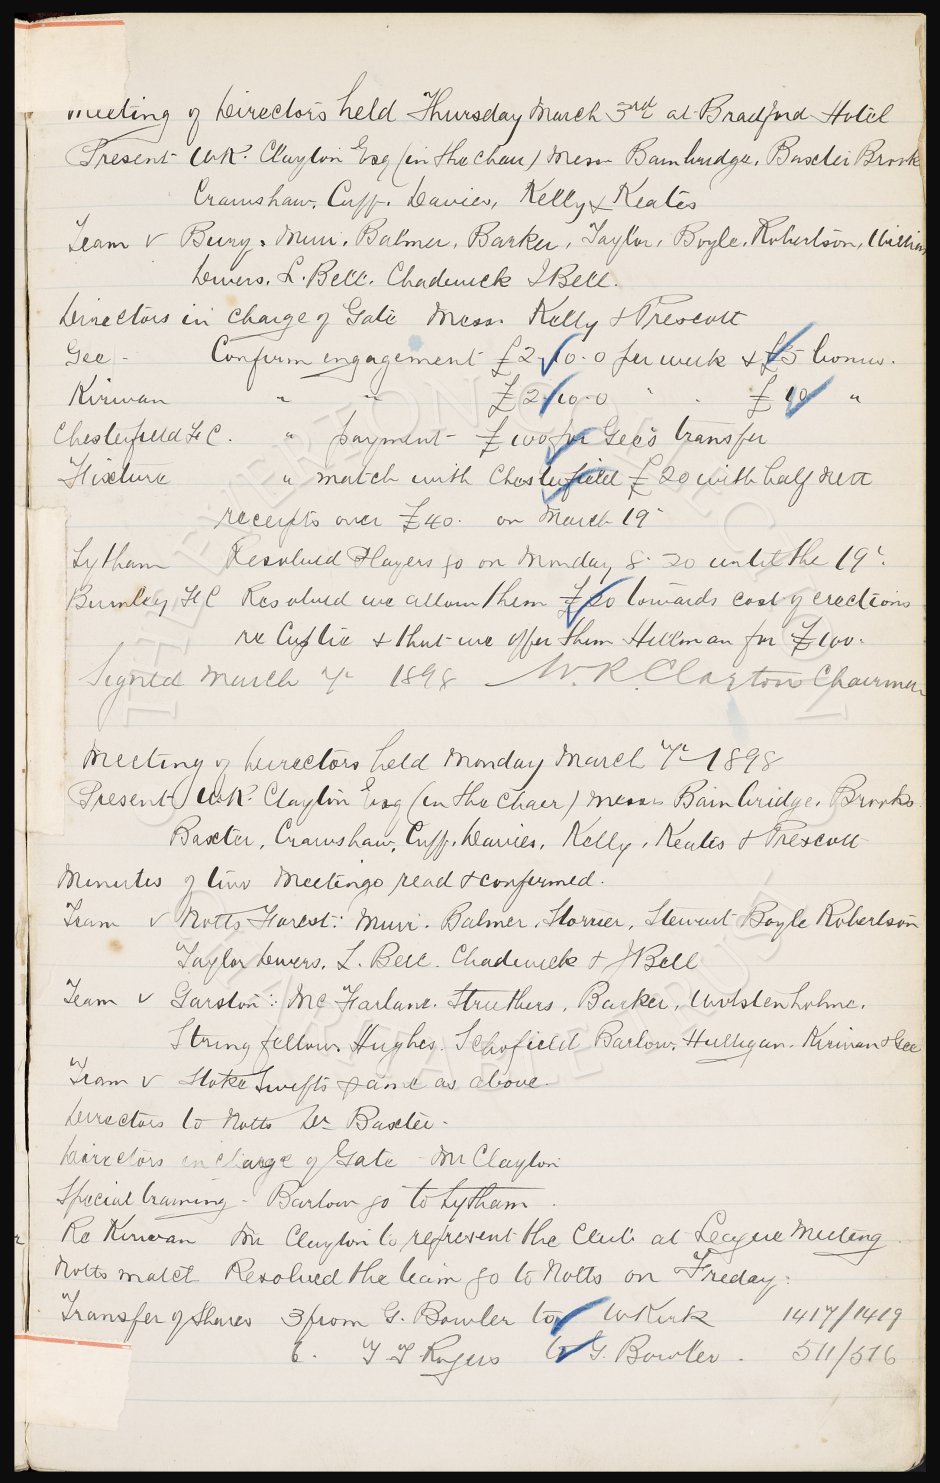 Meeting of Directors held Thursday March 3rd at Bradford Hotel
Present W.R. Clayton Esq (in the chair) Messrs Bainbridge, Baxter Brooks
Crawshaw, Cuff, Davies, Kelly & Keates
Team v Bury. Muir, Balmer, Barker, Taylor, Boyle, Robertson, Williams
Divers, L. Bell. Chadwick J Bell.
Directors in charge of Gate Messrs Kelly & Prescott
Gee - Confirm engagement £2.10.0 per week & £5 bonus.
Kirwan " " £2.10.0 " " £10 "
Chesterfield F.C. " payment £100 for Gee's transfer
Fixture " match with Chesterfield £20 with half nett
receipts over £40. on March 19
Lytham Resolved Players go on Monday 8.20 until the 19th.
Burnley F.C Resolved we allow them £20 towards cost of erections
re Cuptie & that we offer them Hillman for £100.
Signed March 7th 1898 W.R. Clayton Chairman
Meeting of Directors held Monday March 7th 1898
Present W.R. Clayton Esq (in the chair) Messrs Bainbridge, Brooks
Baxter, Crawshaw, Cuff, Davies, Kelly, Keates & Prescott
Minutes of two meetings read & confirmed.
Team v Notts Forest: Muir. Balmer, Storrier, Stewart Boyle Robertson
Taylor Divers, L. Bell. Chadwick & J Bell
Team v Garston: McFarlane. Struthers, Barker, Wolstenholme,
Stringfellow, Hughes. Schofield Barlow, Hulligan. Kirwan & Gee
Team v Stoke Swifts same as above.
Directors to Notts Dr Baxter.
Directors in charge of Gate Mr Clayton
Special training - Barlow go to Lytham
Re Kirwan Mr Clayton to represent the Club at League Meeting
Notts match Resolved the team go to Notts on Friday.
Transfer of Shares 3 from G. Bowler to W Kirk 1417/1419
6. T T Rogers to G. Bowler. 511/516
THE EVERTON COLLECTION
CHARITABLE TRUST